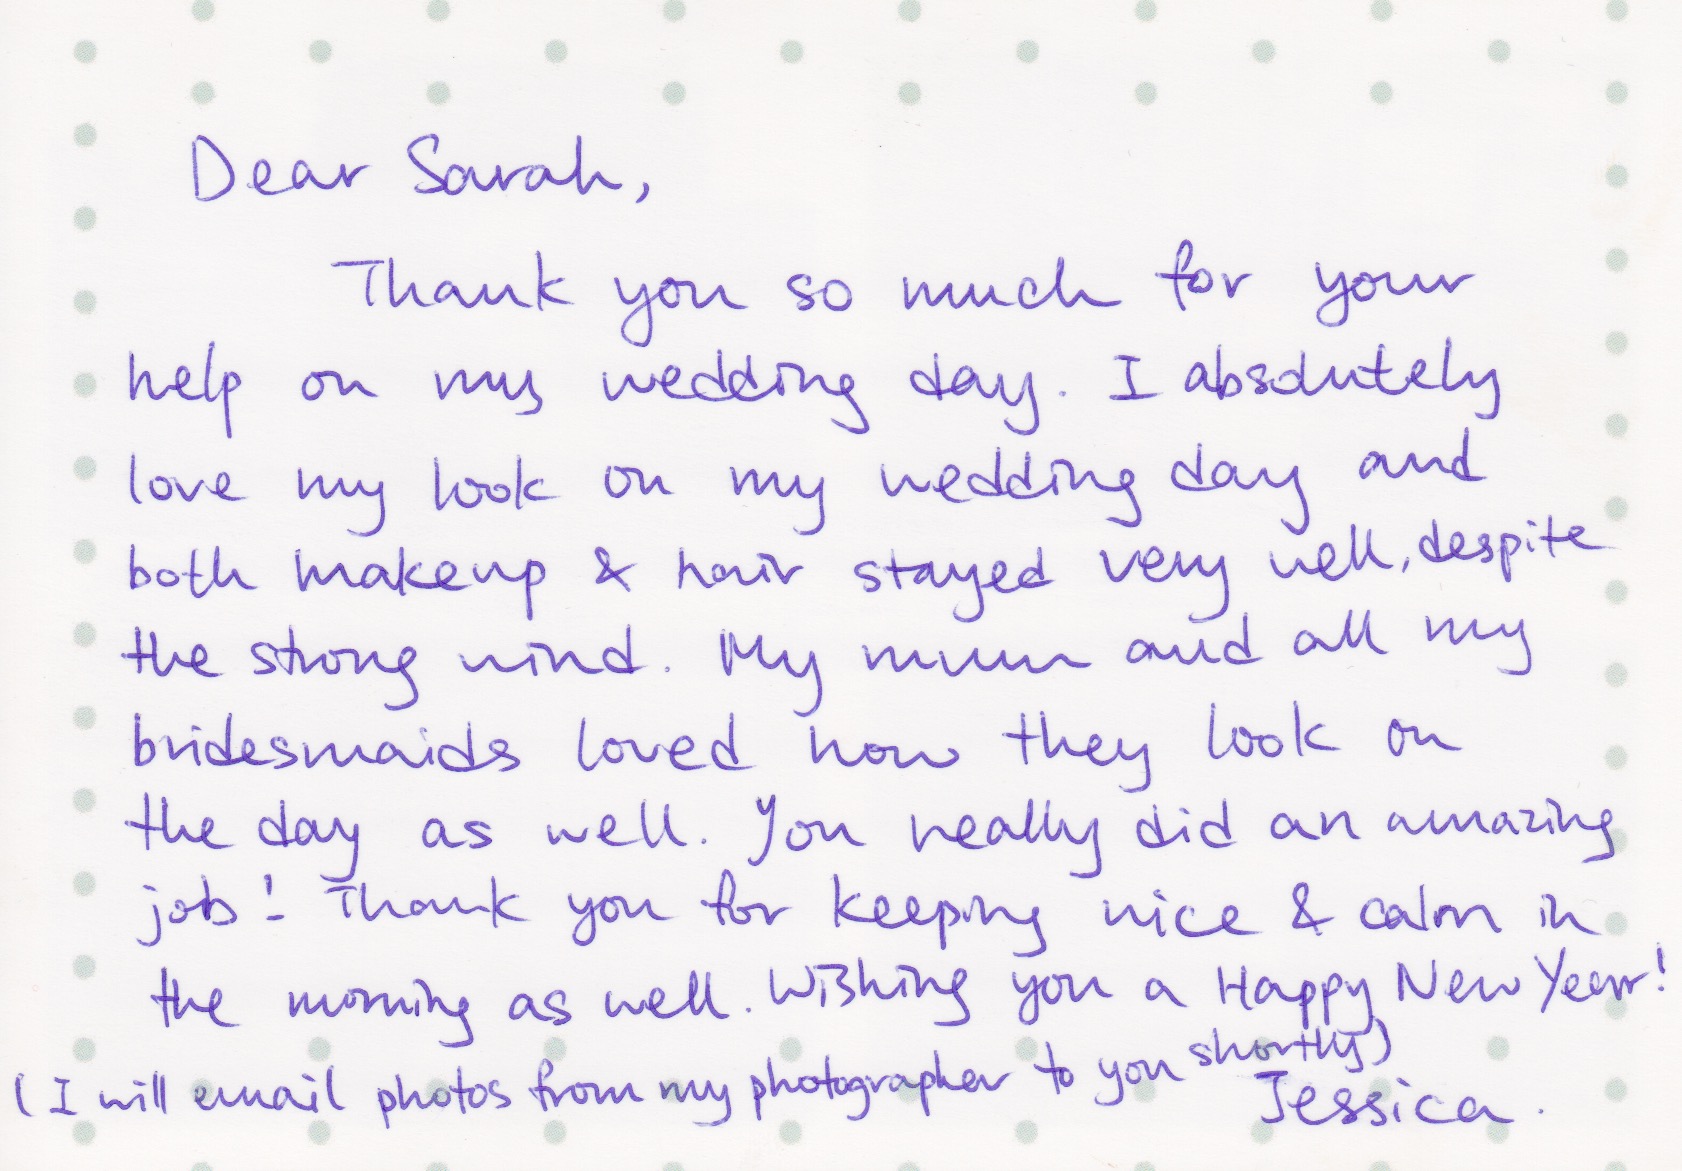 Dear Sarah,
Thank you so much for your
help on my wedding day. I absolutely
love my look on my wedding day and
both makeup & hair stayed very well, despite
the strong wind. My mum and all my
bridesmaids loved how they look on
the day as well. You really did an amazing
job! Thank you for keeping nice & calm in
the morning as well. Wishing you a Happy New Year!
(I will email photos from my photographer to you shortly)
Jessica.